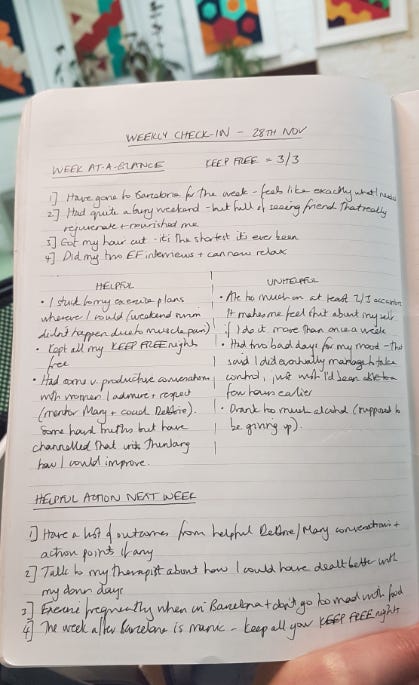 WEEKLY CHECK-IN - 28TH NOV
WEEK AT-A-GLANCE KEEP FREE = 3/3
1] Have gone to Barcelona for the week - feels like exactly what I need
2] Had quite a busy weekend - but full of seeing friend that really
rejuvenate + nourished me
3] Got my hair cut - it's the shortest it's ever been
4] Did my two EF interviews + can now relax
HELPFUL
• I stuck to my exercise plans
wherever I could (weekend run
didn't happen due to muscle pain)
• Kept all my KEEP FREE nights
free
• Had some v. productive conversations
with women I admire + respect
(mentor Mary + coach Debbie).
Some hard truths but have
channelled that into thinking
how I could improve.
UNHELPFUL
• Ate too much on at least 2/3 occasions
It makes me feel shit about myself
if I do it more than once a week
• Had two bad days for my mood - That
said I did eventually manage to take
control, just wish I'd been able to a
few hours earlier
• Drank too much alcohol (supposed to
be giving up).
HELPFUL ACTION NEXT WEEK
1] Have a list of outcomes from helpful Debbie/Mary conversations +
action points if any
2] Talk to my therapist about how I could have dealt better with
my down days
3] Exercise frequently when in Barcelona + don't go too mad with food
4] The week after Barcelona is manic - keep all your KEEP FREE nights